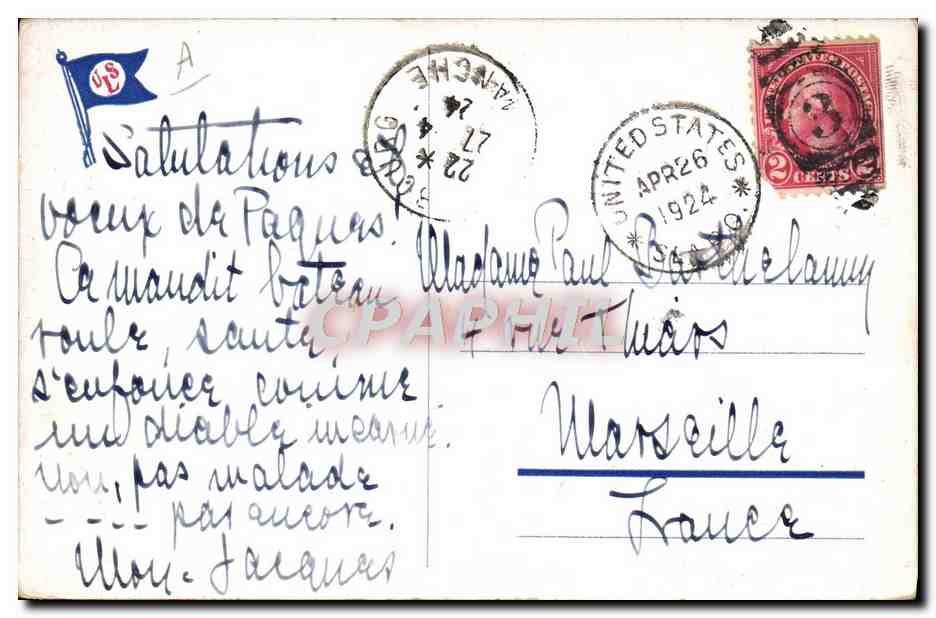 USL
A
Salutations et
voeux de Paques!
Ce maudit bateau
roule, saute,
s'enfonce comme
un diable incarné.
Non, pas malade
---- pas encore.
Mon-Jacques
MANCHE
22 * 27 4 24
UNITED STATES
APR 26
1924
2 CENTS 2
3
Madame Paul
rue Thiars
Marseille
France
CPAPHIL